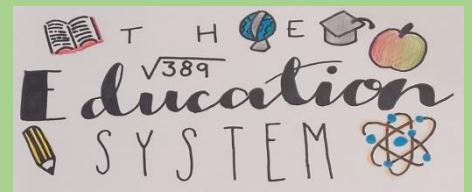 THE
√389
Education
SYSTEM